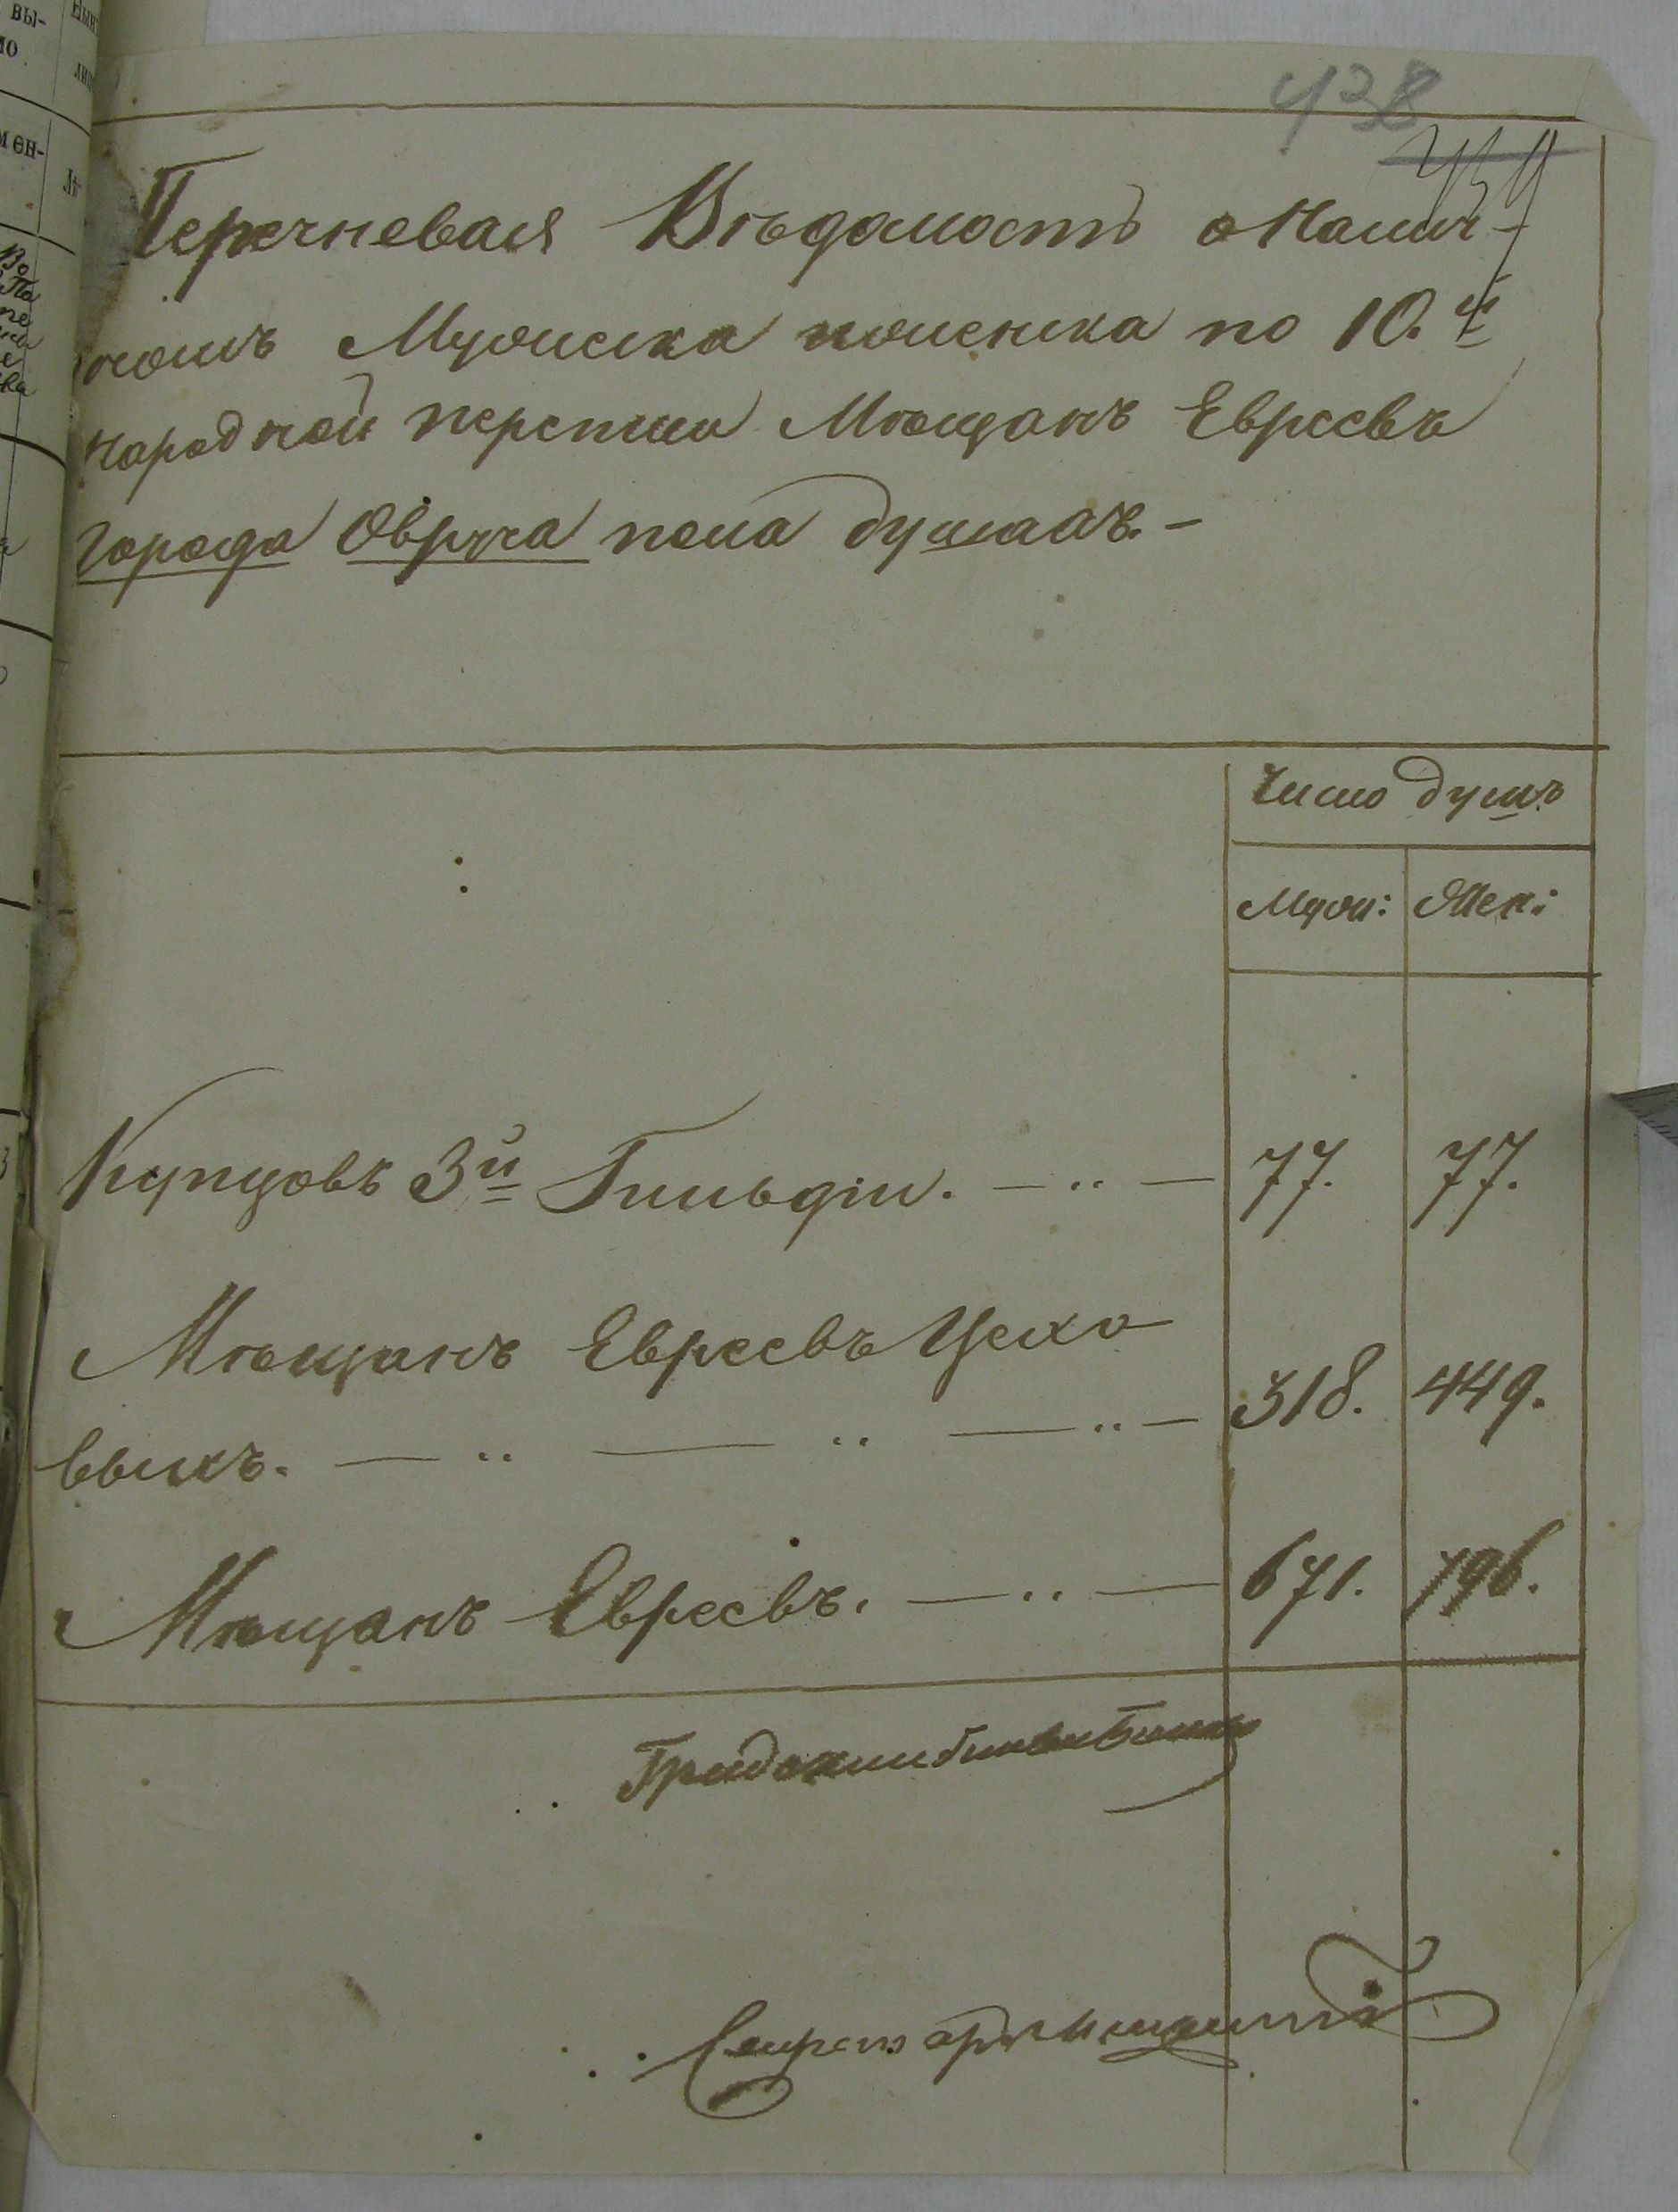 438
439
Перечневая Вѣдомость о Налич-
номъ Мужеска и женска по 10.й
народной переписи Мѣщанъ Евреевъ
города Овруча пола душахъ.-
Число душъ
Муж: Жен:
Купцовъ 3й Гильдіи. 77. 77.
Мѣщанъ Евреевъ Цехо
выхъ. 318. 449.
Мѣщанъ Евреевъ. 671. 796.
Секретарь